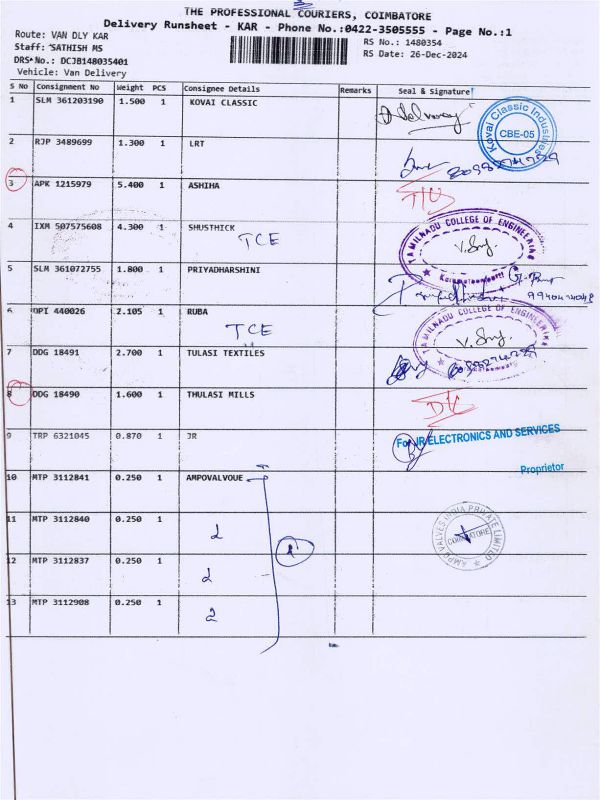 THE PROFESSIONAL COURIERS, COIMBATORE
Delivery Runsheet - KAR - Phone No.:0422-3505555 - Page No.:1
Route: VAN DLY KAR
RS No.: 1480354
Staff: SATHISH MS
RS Date: 26-Dec-2024
DRS No.: DCJB148035401
Vehicle: Van Delivery
S No Consignment No Weight PCS Consignee Details Remarks Seal & Signature
1 SLM 361203190 1.500 1 KOVAI CLASSIC
Kovai Classic Industries
CBE-05
2 RJP 3489699 1.300 1 LRT
3 APK 1215979 5.400 1 ASHIHA
4 IXM 507575608 4.300 1 SHUSTHICK
TCE
TAMILNADU COLLEGE OF ENGINEERING
5 SLM 361072755 1.800 1 PRIYADHARSHINI
6 OPI 440026 2.105 1 RUBA
TCE
TAMILNADU COLLEGE OF ENGINEERING
7 DDG 18491 2.700 1 TULASI TEXTILES
8 DDG 18490 1.600 1 THULASI MILLS
9 TRP 6321045 0.870 1 JR
For JR ELECTRONICS AND SERVICES
Proprietor
10 MTP 3112841 0.250 1 AMPOVALVOUE
11 MTP 3112840 0.250 1
AMPO VALVES INDIA PRIVATE LIMITED
COIMBATORE
12 MTP 3112837 0.250 1
13 MTP 3112908 0.250 1